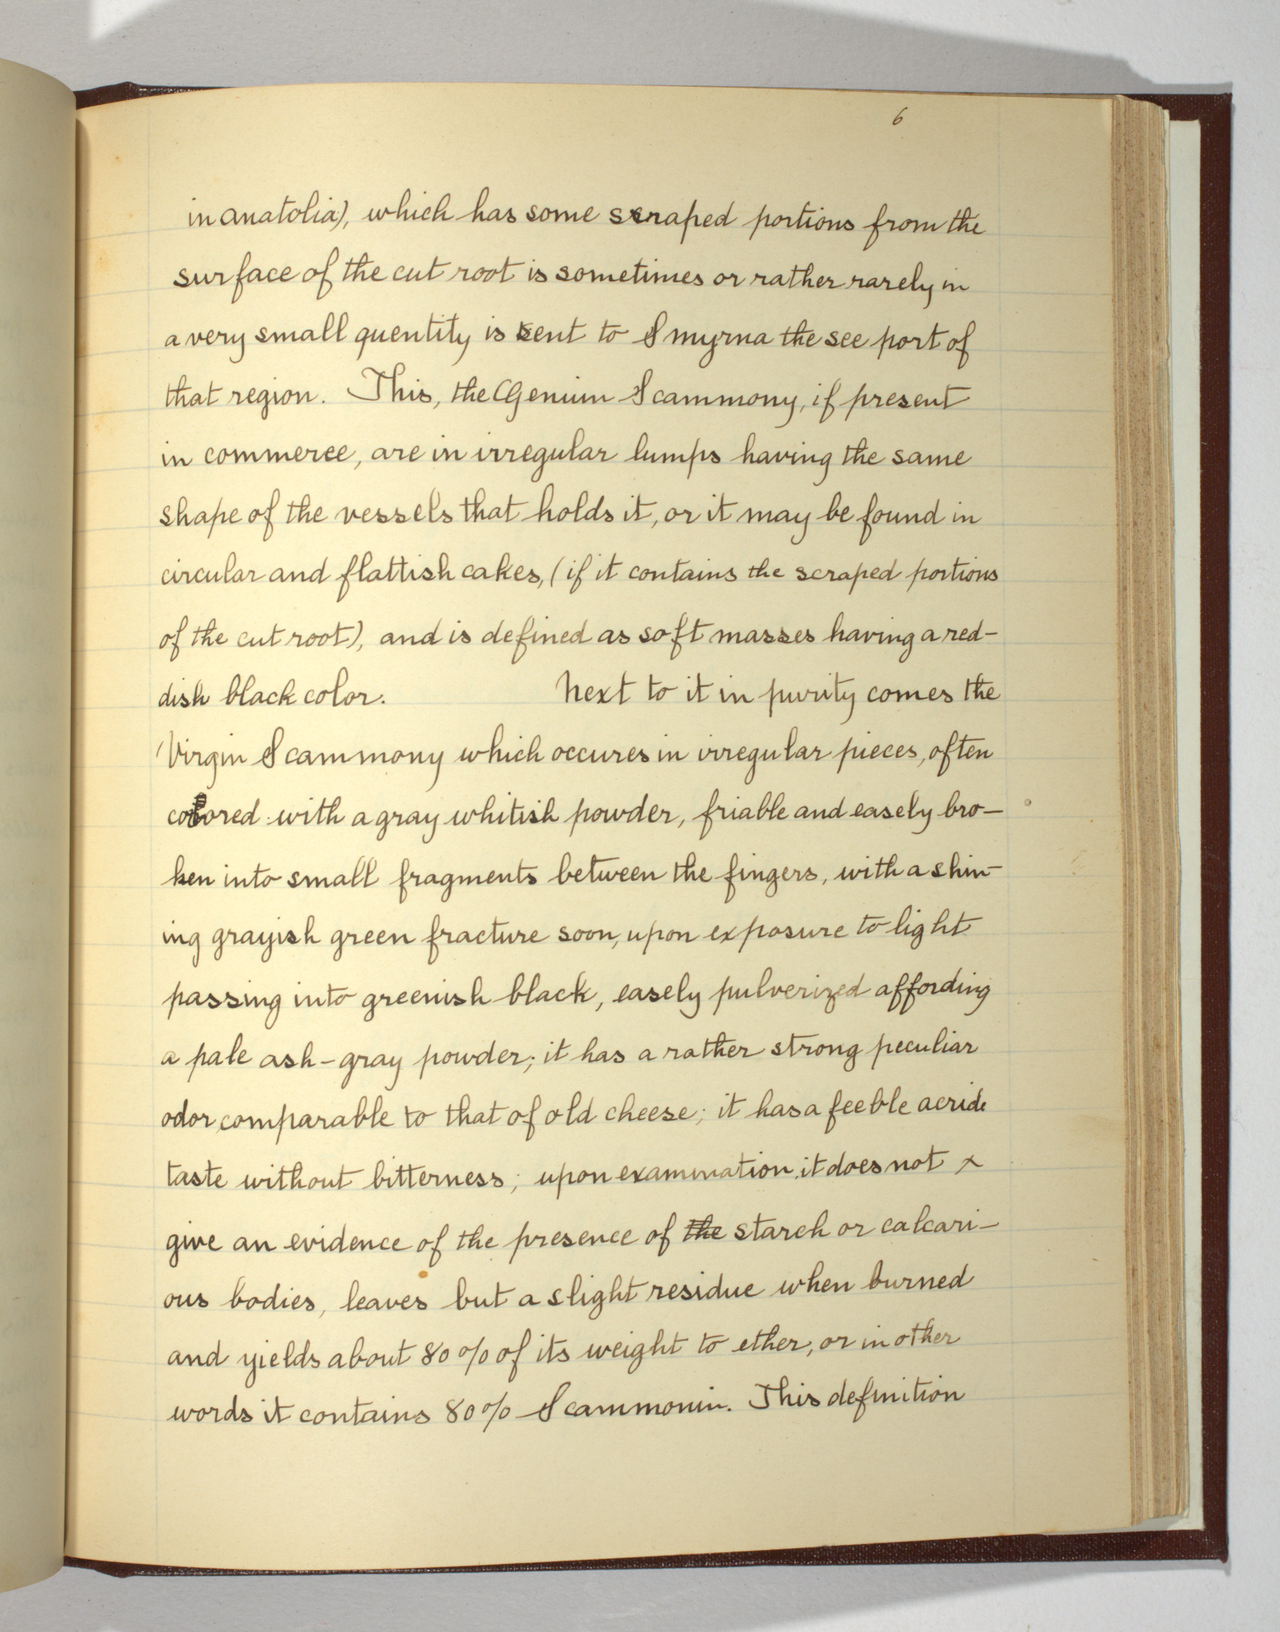 6
in anatolia), which has some scraped portions from the
surface of the cut root is sometimes or rather rarely in
a very small quentity is sent to Smyrna the see port of
that region. This, the Genium Scammony, if present
in commerce, are in irregular lumps having the same
shape of the vessels that holds it, or it may be found in
circular and flattish cakes, (if it contains the scraped portions
of the cut root), and is defined as soft masses having a red-
dish black color. Next to it in purity comes the
Virgin Scammony which occures in irregular pieces, often
colored with a gray whitish powder, friable and easely bro-
ken into small fragments between the fingers, with a shin-
ing grayish green fracture soon, upon exposure to light
passing into greenish black, easely pulverized affording
a pale ash-gray powder; it has a rather strong peculiar
odor comparable to that of old cheese; it has a feeble acride
taste without bitterness; upon examination it does not x
give an evidence of the presence of the starch or calcari-
ous bodies, leaves but a slight residue when burned
and yields about 80% of its weight to ether, or in other
words it contains 80% Scammonin. This definition